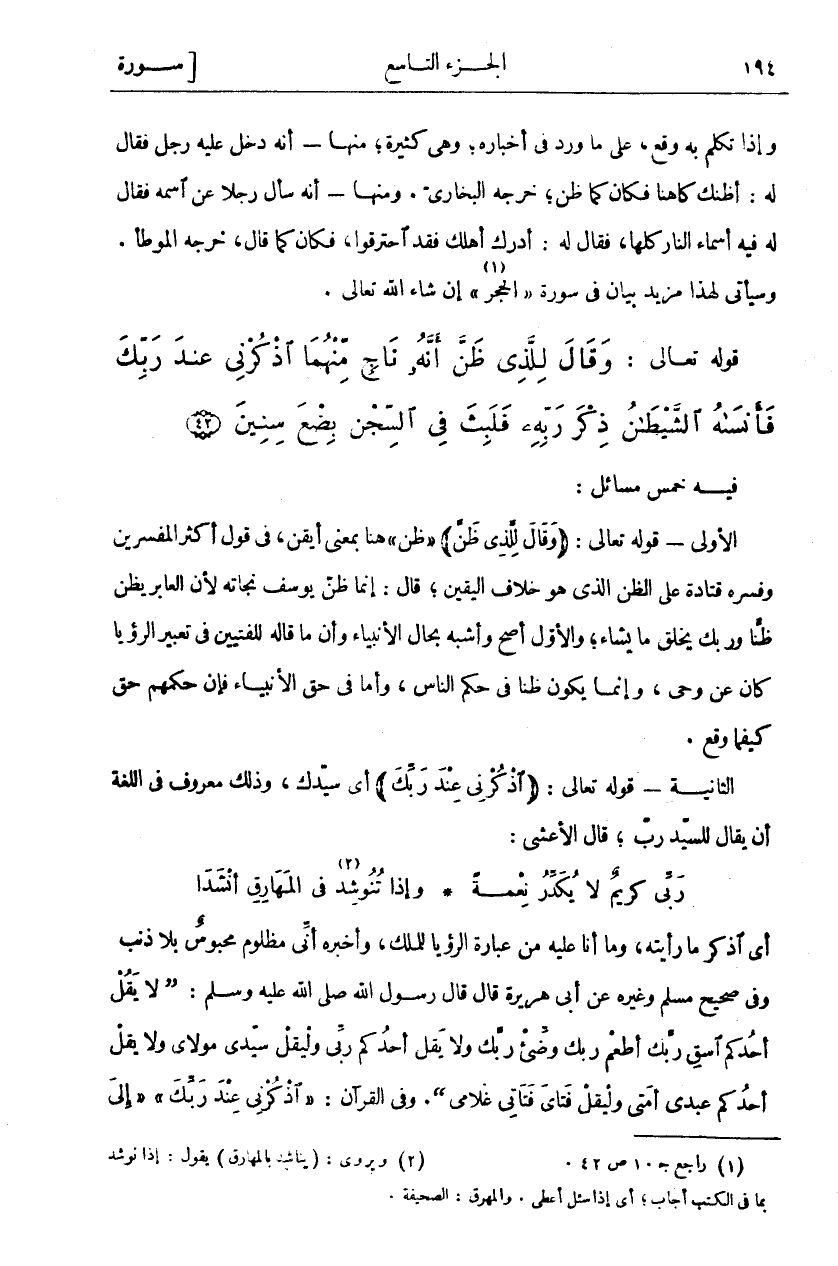 ١٩٤ الجـــزء التـاسع [ ســـورة
وإذا تكلم به وقع، على ما ورد فى أخباره؛ وهى كثيرة؛ منهـا — أنه دخل عليه رجل فقال
له : أظنك كاهنا فكان كما ظن؛ خرجه البخارىّ . ومنهـا — أنه سأل رجلا عن ٱسمه فقال
له فيه أسماء النار كلها، فقال له : أدرك أهلك فقد ٱحترقوا، فكان كما قال، خرجه الموطأ .
وسيأتى لهذا مزيد بيان فى سورة «الحجر» (١) إن شاء الله تعالى .
قوله تعـالى : وَقَالَ لِلَّذِى ظَنَّ أَنَّهُۥ نَاجٍ مِّنْهُمَا ٱذْكُرْنِى عِندَ رَبِّكَ
فَأَنسَىٰهُ ٱلشَّيْطَـٰنُ ذِكْرَ رَبِّهِۦ فَلَبِثَ فِى ٱلسِّجْنِ بِضْعَ سِنِينَ ﴿٤٢﴾
فيـــه خمس مسائل :
الأولى — قوله تعالى : ﴿وَقَالَ لِلَّذِى ظَنَّ﴾ «ظن» هنا بمعنى أيقن، فى قول أكثر المفسرين
وفسره قتادة على الظن الذى هو خلاف اليقين؛ قال : إنما ظنّ يوسف نجاته لأن العابر يظن
ظنًّا وربك يخلق ما يشاء؛ والأوّل أصح وأشبه بحال الأنبياء وأن ما قاله للفتيين فى تعبير الرؤيا
كان عن وحى، وإنمـا يكون ظنا فى حكم الناس، وأما فى حق الأنبيـاء فإن حكمهم حق
كيفما وقع .
الثانيـــة — قوله تعالى : ﴿ٱذْكُرْنِى عِنْدَ رَبِّكَ﴾ أى سيّدك، وذلك معروف فى اللغة
أن يقال للسيّد ربّ؛ قال الأعشى :
رَبِّى كريمٌ لا يُكَدِّرُ نِعْمـــةً * وإذا تُنُوشِد (٢) فى المَهَارِقِ أنْشَدَا
أى ٱذكر ما رأيته، وما أنا عليه من عبارة الرؤيا للملك، وأخبره أنِّى مظلوم محبوسٌ بلا ذنب
وفى صحيح مسلم وغيره عن أبى هريرة قال قال رسول الله صلى الله عليه وسـلم : ”لا يَقُلْ
أحدُكم ٱسقِ ربَّك أطعِمْ ربك وضّئْ ربَّك ولا يَقل أحدُكم ربِّى وليقلْ سيّدى مولاى ولا يقلْ
أحدُكم عبدى أَمَتى وليقلْ فَتَاىَ فَتَاتِى غلامى“. وفى القرآن : «ٱذْكُرْنِى عِنْدَ رَبِّكَ» «إِلَى
(١) راجع جـ ١٠ ص ٤٢ . (٢) ويروى : (يناشد بالمهارق) يقول : إذا نوشد
بما فى الكتب أجاب؛ أى إذا سئل أعطى . والمهرق : الصحيفة .